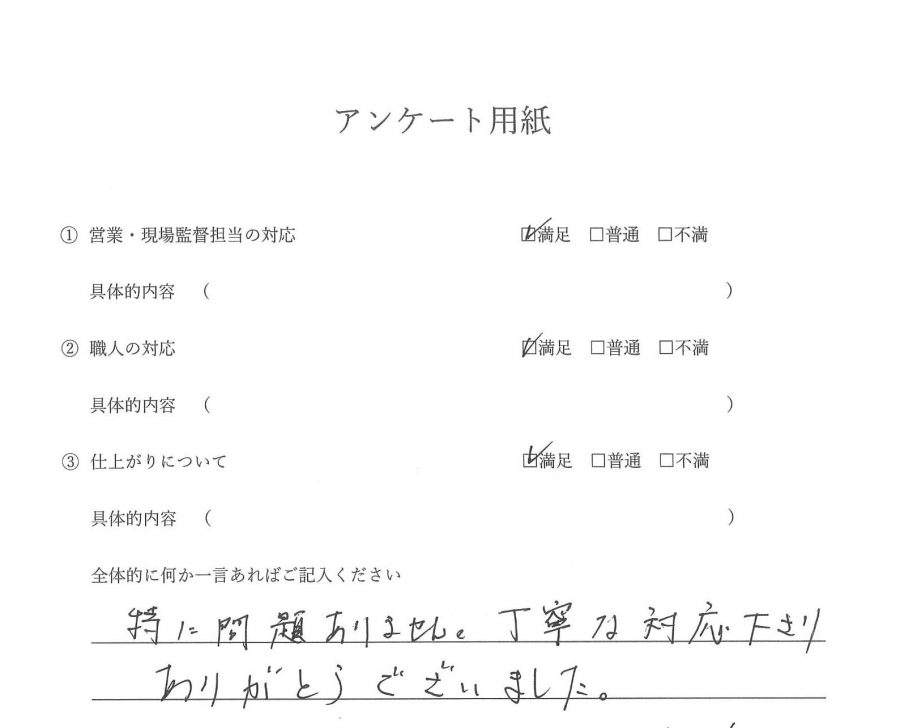 アンケート用紙
① 営業・現場監督担当の対応 ☑満足 □普通 □不満
具体的内容 ( )
② 職人の対応 ☑満足 □普通 □不満
具体的内容 ( )
③ 仕上がりについて ☑満足 □普通 □不満
具体的内容 ( )
全体的に何か一言あればご記入ください
特に問題ありません。丁寧な対応下さり
ありがとうございました。